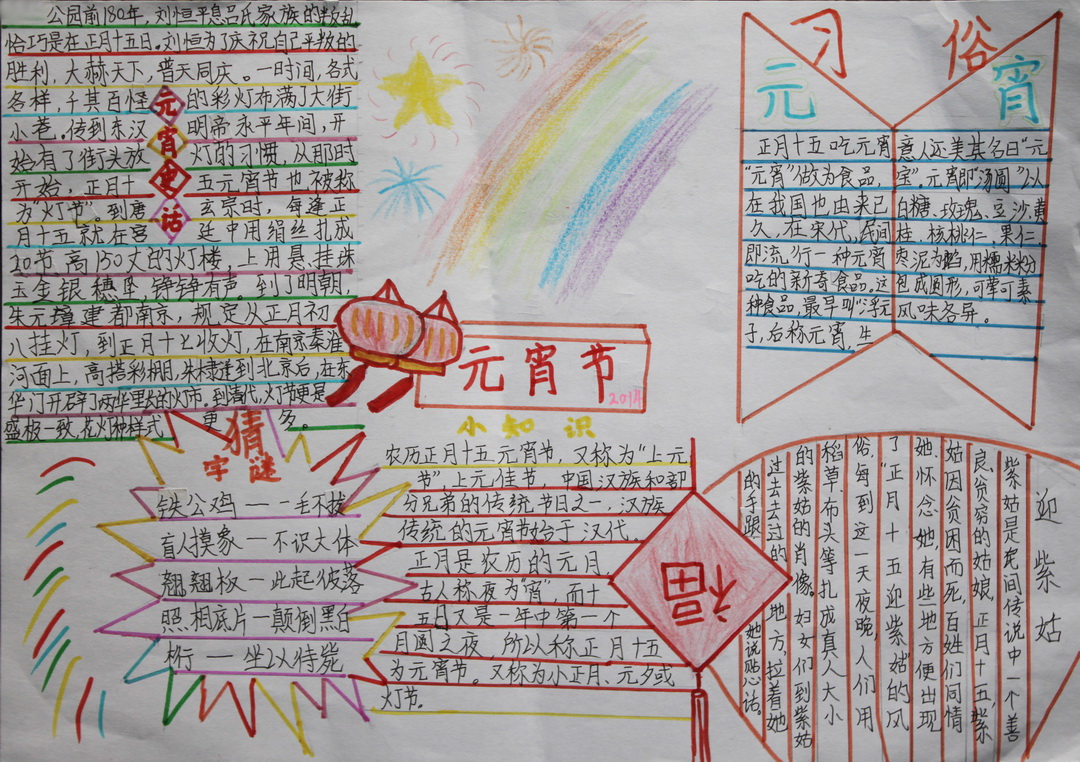 公园前180年，刘恒平息吕氏家族的叛乱
恰巧是在正月十五日。刘恒为了庆祝自己平叛的
胜利，大赦天下，普天同庆。一时间，各式
各样，千其百怪的彩灯布满了大街
小巷。传到东汉明帝永平年间，开
始有了街头放灯的习惯，从那时
开始，正月十五元宵节也被称
为“灯节”。到唐玄宗时，每逢正
月十五就在宫廷中用绢丝扎成
20节、高150丈的灯楼，上用悬挂珠
玉金银穗坠，铮铮有声。到了明朝，
朱元璋建都南京，规定从正月初
八挂灯，到正月十七收灯，在南京秦淮
河面上，高搭彩棚，朱棣迁到北京后，在东
华门开辟了两华里长的灯市。到清代，灯节更是
盛极一致，花灯种样式更多。
元宵史话
元宵节
2014
习俗
元宵
正月十五吃元宵
“元宵”做为食品，
在我国也由来已
久，在宋代，民间
即流行一种元宵
吃的新奇食品。这
种食品，最早叫“浮元
子，后称元宵，生
意人还美其名曰“元
宝”。元宵即“汤圆”以
白糖、玫瑰、豆沙、黄
桂、核桃仁、果仁、
枣泥为馅，用糯米粉
包成圆形，可荤可素
风味各异。
猜
字谜
铁公鸡——一毛不拔
盲人摸象——不识大体
翘翘板—此起彼落
照相底片—颠倒黑白
桁——坐以待毙
小知识
农历正月十五元宵节，又称为“上元
节”，上元佳节，中国汉族和部
分兄弟的传统节日之一，汉族
传统的元宵节始于汉代。
正月是农历的元月，
古人称夜为“宵”，而十
五月又是一年中第一个
月圆之夜，所以称正月十五
为元宵节。又称为小正月、元夕或
灯节。
福
迎紫姑
紫姑是民间传说中一个善
良、贫穷的姑娘。正月十五，紫
姑因贫困而死，百姓们同情
她、怀念她，有些地方便出现
了“正月十五迎紫姑”的风
俗。每到这一天夜晚，人们用
稻草、布头等扎成真人大小
的紫姑的肖像。妇女们到紫姑
过去去过的地方，拉着她
的手跟她说贴心话。